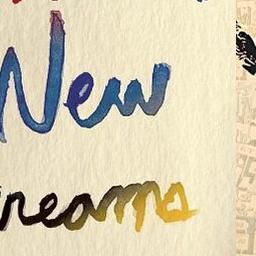 New
reams